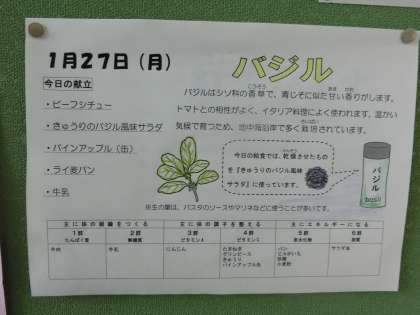 1月27日（月）
バジル
今日の献立
・ビーフシチュー
・きゅうりのバジル風味サラダ
・パインアップル（缶）
・ライ麦パン
・牛乳
バジルはシソ科の香草で、青じそに似た甘い香りがします。
トマトとの相性がよく、イタリア料理によく使われます。温かい
気候で育つため、地中海沿岸で多く栽培されています。
今日の給食では、乾燥させたもの
を『きゅうりのバジル風味
サラダ』に使っています。
バジル
basil
※生の葉は、パスタのソースやマリネなどに使うことが多いです。
主に体の組織をつくる 主に体の調子を整える 主にエネルギーになる
1群 2群 3群 4群 5群 6群
たんぱく質 無機質 ビタミンA ビタミンC 炭水化物 脂質
牛肉 牛乳 にんじん たまねぎ パン サラダ油
グリンピース じゃがいも
きゅうり 砂糖
パインアップル缶 小麦粉